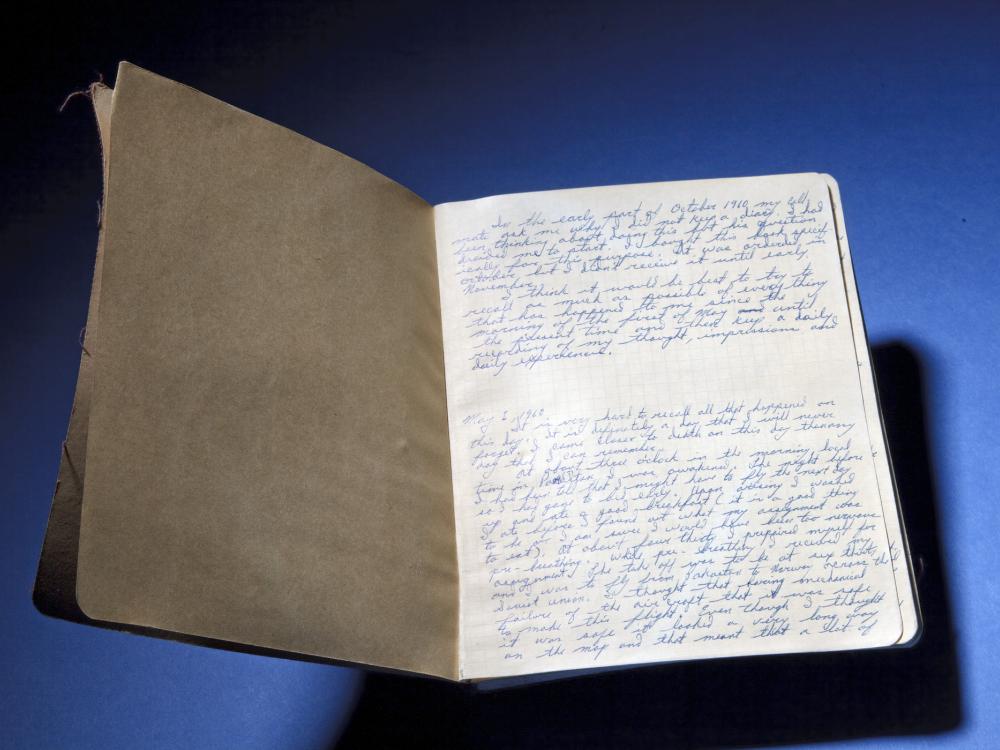 In the early part of October 1960 my cell
mate ask me why I did not keep a diary. I had
been thinking about doing this but his question
decided me to start. I bought this book specif-
ically for this purpose. It was ordered in
october but I didn't receive it until early
November.
I think it would be best to try to
recall as much as possible of everything
that has happened to me since the
morning of the first of May and until
the present time and then keep a daily
recording of my thought, impressions and
daily experiences.
May 1, 1960
It is very hard to recall all that happened on
this day. It is definitely a day that I will never
forget. I came closer to death on this day than any
day that I can remember.
At about three o'clock in the morning, local
time in Pakistan, I was awakened. The night before
I had been told that I might have to fly the next day
so I had gone to bed early. Upon arising I washed
up and ate a good breakfast (it is a good thing
I ate before I found out what my assignment was
to be or I am sure I would have been too nervous
to eat). At about four thirty I prepared myself for
pre-breathing. While pre-breathing I received my
assignment. The take off was to be at six thirty
and I was to fly from Pakastan to Norway across the
Soviet union. I thought that barring mechanical
failure of the air craft that it was safe
to make this flight. Even though I thought
it was safe it looked a very long way
on the map and that meant that a lot of